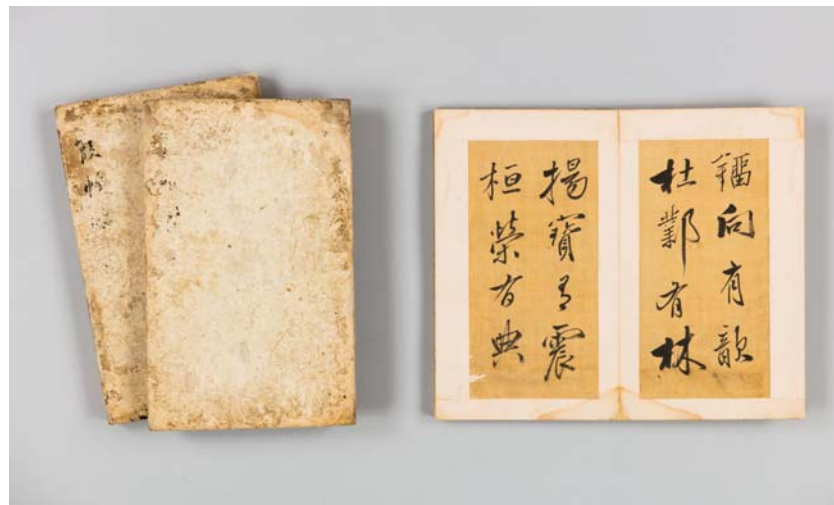 鎦向有歆
杜鄴有林
揚寶有震
桓榮有典